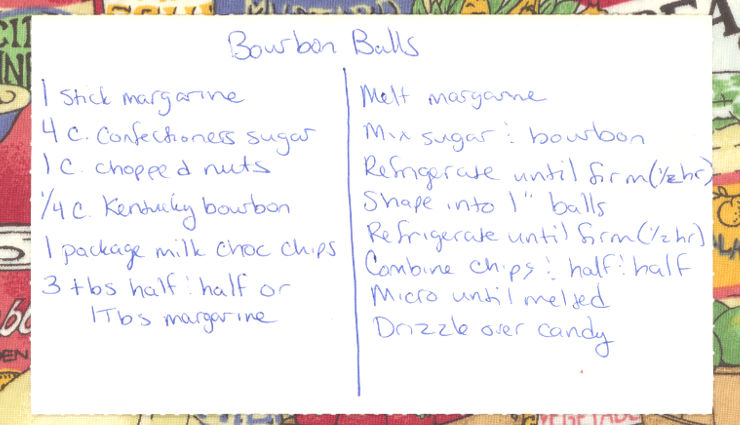 Bourbon Balls
1 stick margarine
4 c. Confectioners sugar
1 c. chopped nuts
1/4 c. Kentucky bourbon
1 package milk choc chips
3 tbs half & half or
1Tbs margarine
Melt margarine
Mix sugar & bourbon
Refrigerate until firm (1/2 hr)
Shape into 1" balls
Refrigerate until firm (1/2 hr)
Combine chips & half & half
Micro until melted
Drizzle over candy